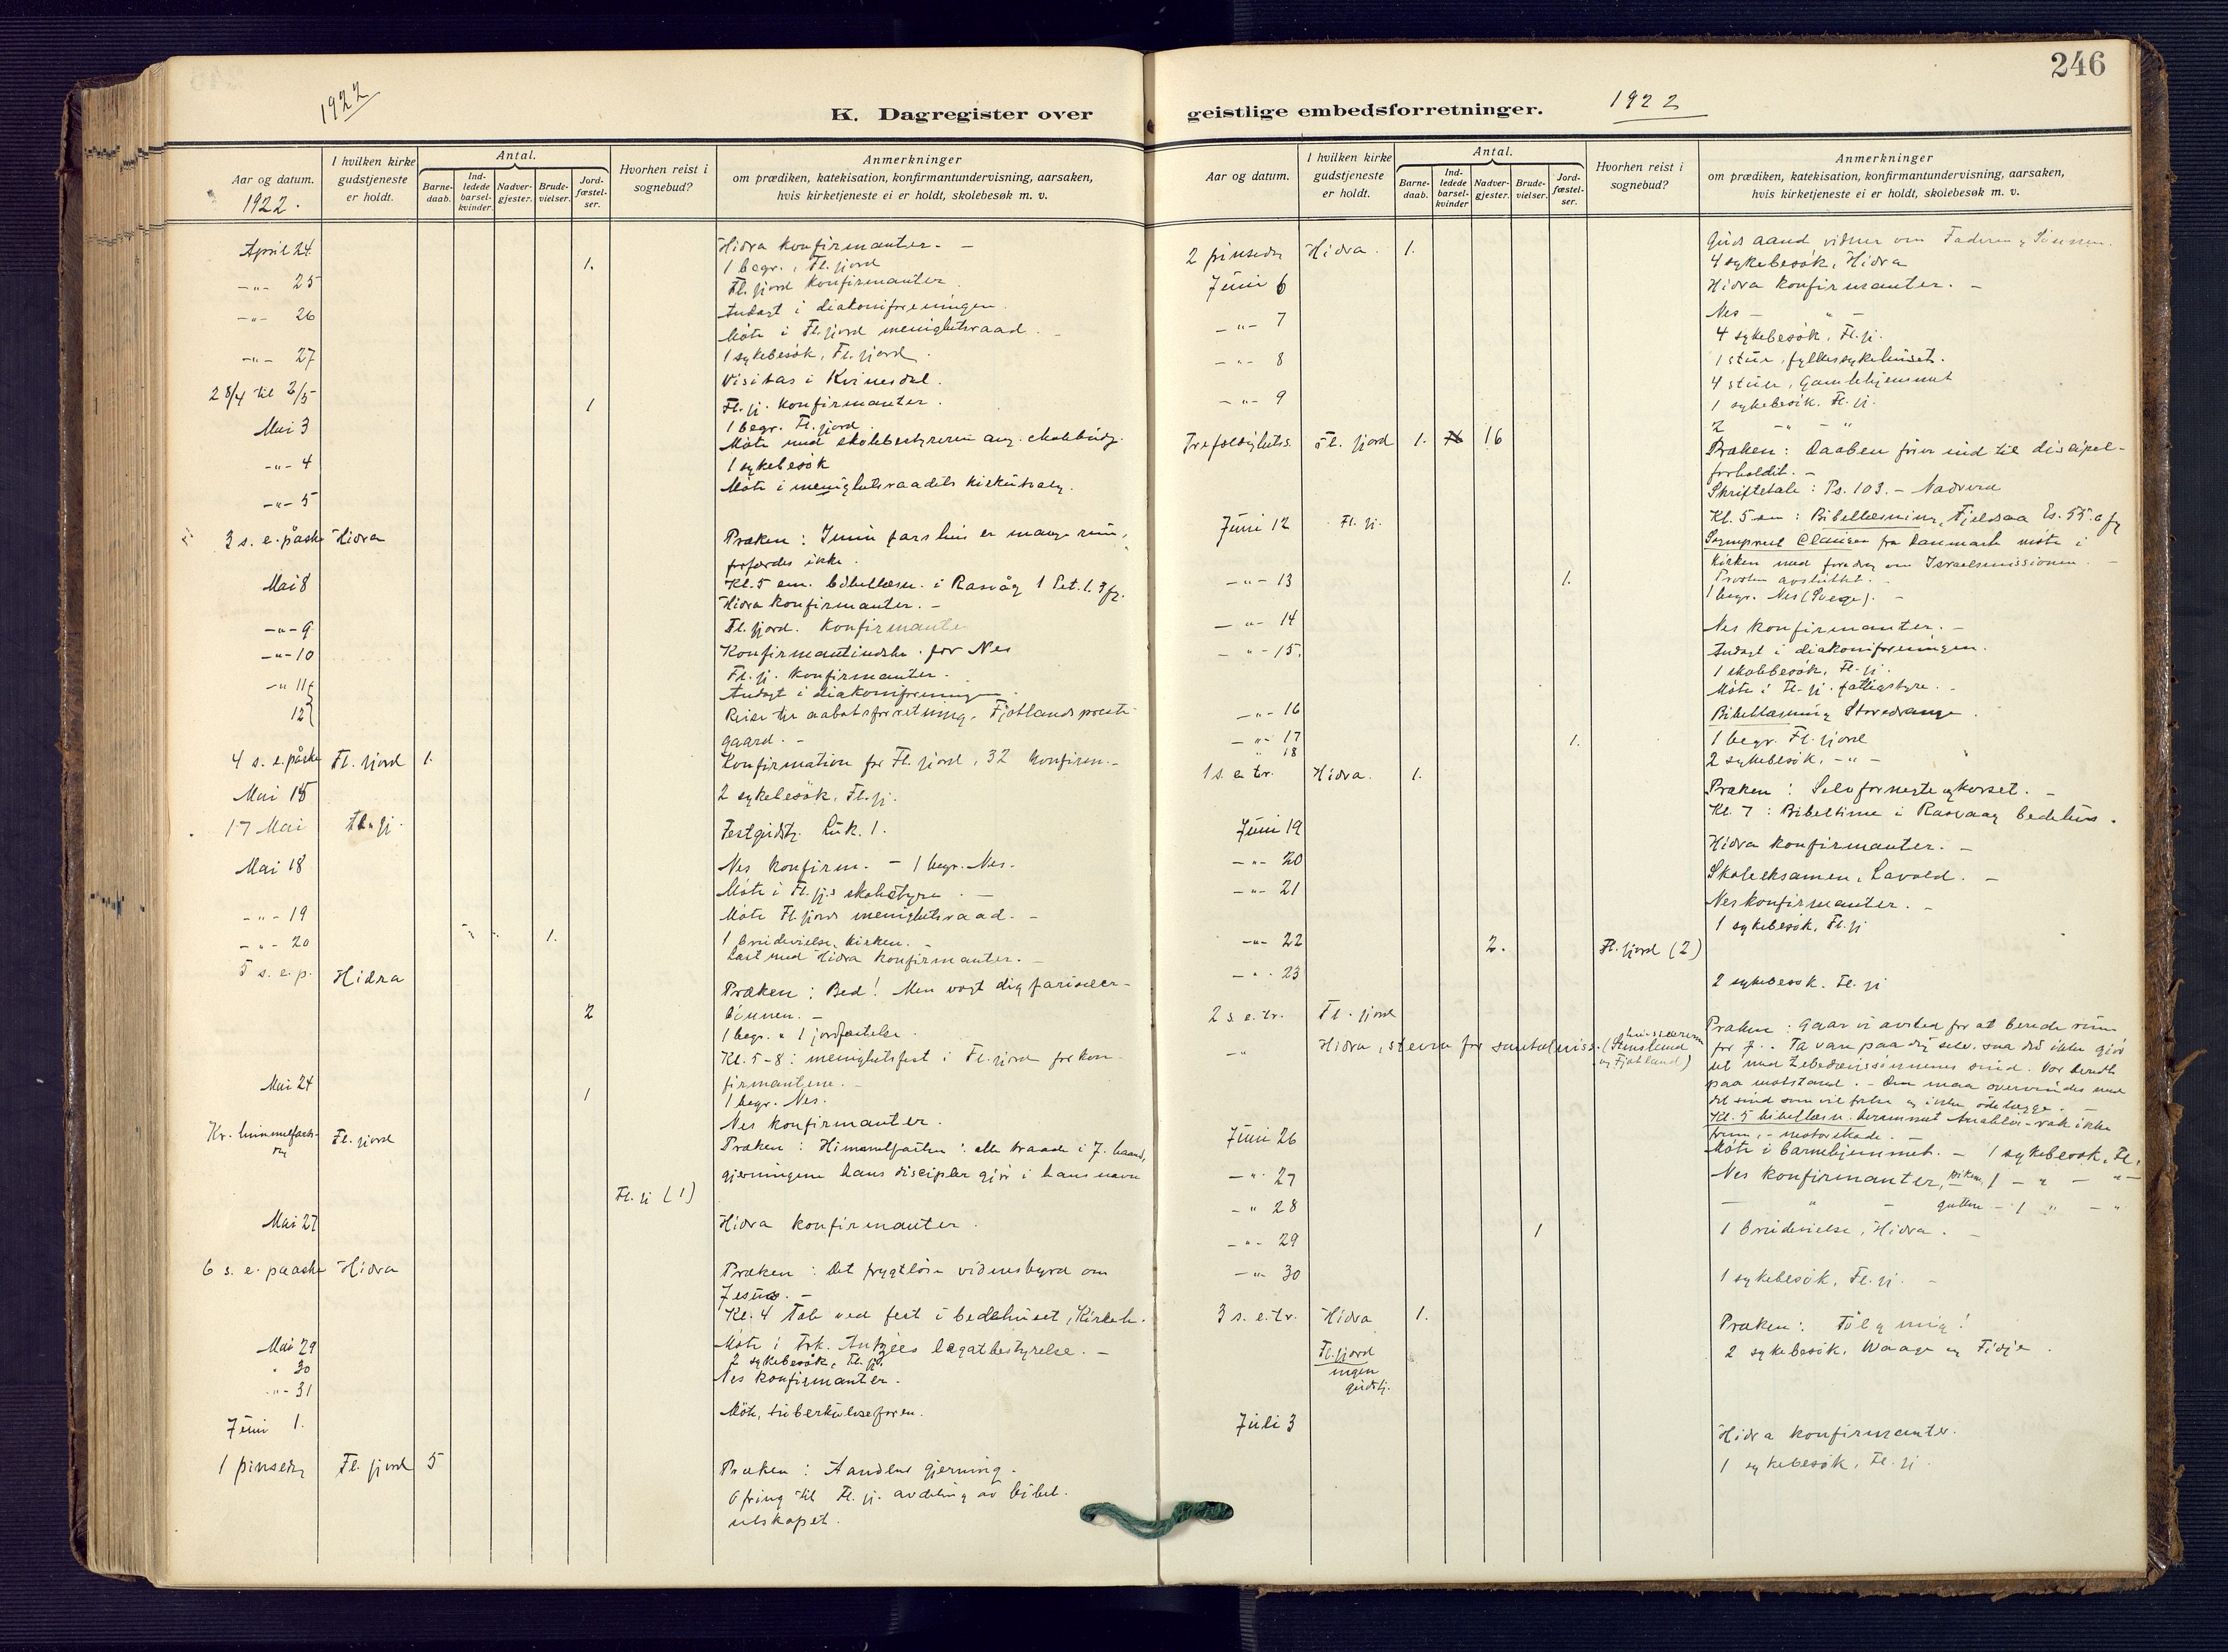 246
1922
K. Dagregister over
geistlige embedsforretninger.
1922
Aar og datum.
1922.
I hvilken kirke gudstjeneste er holdt.
Antal.
Barne-daab.
Ind-ledede barsel-kvinder.
Nadver-gjester.
Brude-vielser.
Jord-fæstel-ser.
Hvorhen reist i sognebud?
Anmerkninger
om prædiken, katekisation, konfirmantundervisning, aarsaken,
hvis kirketjeneste ei er holdt, skolebesøk m. v.
April 24 Hidra konfirmanter. -
1. 1 begr. Fl.fjord
-"- 25 Fl.fjord konfirmanter.
-"- 26 Andagt i diakoniforeningen.
Møte i Fl.fjord menighetsraad. -
-"- 27 1 sykebesøk, Fl.fjord.
28/4 til 2/5 Visitas i Kvinesdal.
Mai 3 Fl.fj. konfirmanter.
1 1 begr. Fl.fjord.
Møte med skolebestyreren ang.
-"- 4 1 sykebesøk
-"- 5 Møte i menighetsraadets
3 s. e. påske Hidra Præken: I min fars hus er mange rum,
forfærdes ikke.
Kl. 5 em. bibellæsn. i Rasvåg 1 Pet. 1. 3 fg.
Mai 8 Hidra konfirmanter. -
-"- 9 Fl.fjord. Konfirmanter
-"- 10 Konfirmantindskr. for Nes
Fl.fj. konfirmanter.
-"- 11 Andagt i diakoniforeningen.
12 Reise til aabotsforretning, Fjotlands preste-
gaard. -
4 s. e. påske Fl.fjord 1. Konfirmation for Fl.fjord, 32 konfirm. -
Mai 15 2 sykebesøk, Fl.fj.
17 Mai Fl.fj. Festgudstj. Luk. 1.
Mai 18 Nes konfirm. - 1 begr. Nes.
Møte i Fl.fj.s skolestyre. -
-"- 19 Møte Fl.fjords menighetsraad. -
-"- 20 1. 1 brudevielse, kirken. -
Læst med Hidra konfirmanter. -
5 s. e. p. Hidra Præken: Bed! Men vogt dig farisæer-
bønnen. -
2 1 begr. + 1 jordfæstelse.
Kl. 5-8: menighetsfest i Fl.fjord for kon-
firmantene. -
Mai 24 1 1 begr. Nes.
Nes konfirmanter.
Kr. himmelfarts-
dag Fl.fjord Præken: Himmelfarten: alle traade i J. haand,
gjerningene hans disciple gjør i hans navn
Fl.fj (1)
Mai 27 Hidra konfirmanter.
6 s. e. paaske Hidra Præken: Det frygtløse vidnesbyrd om
Jesus. -
Kl. 4 Tale ved fest i bedehuset, Kirkeh.
Mai 29 Møte i legatbestyrelse. -
" 30 2 sykebesøk, Fl.fj.
-"- 31 Nes konfirmanter.
Juni 1. Møte, tuberkuloseforen.
1 pinsedag Fl.fjord 5 Præken: Aandens gjerning.
Ofring til Fl.fj. avdeling av bibel-
selskapet.
Aar og datum.
I hvilken kirke gudstjeneste er holdt.
Antal.
Barne-daab.
Ind-ledede barsel-kvinder
Nadver-gjester.
Brude-vielser.
Jord-fæstel-ser.
Hvorhen reist i sognebud?
Anmerkninger
om prædiken, katekisation, konfirmantundervisning, aarsaken,
hvis kirketjeneste ei er holdt, skolebesøk m. v.
2 pinsedag Hidra. 1. Guds aand vidner om Faderen og Sønnen.
4 sykebesøk, Hidra
Juni 6 Hidra konfirmanter. -
-"- 7 Nes - " -
4 sykebesøk, Fl.fj.
-"- 8 1 stue, fylkessykehuset.
4 stuer, Gamlehjemmet
-"- 9 1 sykebesøk. Fl.fj.
2 -"- -"-
Trefoldighets. Fl.fjord 1. 16 Præken: Daaben fører ind til discipel-
forholdet. -
Skriftetale: Ps. 103. - Nadverd
Kl. 5 em: Bibellæsning, Fjeldsaa Es. 55. 6 fg
Juni 12 Fl.fj. Sogneprest Clausen fra Danmark møte i
kirken med foredrag om Israelsmissionen. -
Provsten avsluttet. -
-"- 13 1. 1 begr. Nes -
-"- 14 Nes konfirmanter. -
-"- 15. Andagt i diakoniforeningen.
1 skolebesøk, Fl.fj.
Møte i Fl.fj. fattigstyre. -
-"- 16 Bibellæsning Storedrange.
-"- 17 1. 1 begr. Fl.fjord
" 18 2 sykebesøk, -"-
1 s. e. tr. Hidra. 1. Præken: Selvfornegte og korset. -
Kl. 7: Bibeltime i Rasvaag bedehus.
Juni 19 Hidra konfirmanter. -
-"- 20 Skoleeksamen, Lavold. -
-"- 21 Nes konfirmanter. -
1 sykebesøk, Fl.fj
-"- 22 2. Fl.fjord (2)
-"- 23 2 sykebesøk. Fl.fj
2 s. e. tr. Fl.fjord Præken: Gaar vi avsted for at berede rum
for J.. Ta vare paa dig selv, saa det ikke gjør
-"- Hidra, stevne for santalmiss. (
og Fjotland)
det med Zebedæussønnenes sind. Vær beredt
paa motstand. - Den maa overvindes med
det sind som vil frelse og ikke ødelægge. -
Kl. 5 bibellæsn. berammet - rak ikke
frem, - motorskade. -
Juni 26 Møte i barnehjemmet. - 1 sykebesøk, Fl.
-"- 27 Nes konfirmanter, piker, 1 -"- -"-
-"- 28 - " - gutter - 1 " -"
-"- 29 1 1 brudevielse, Hidra. -
-"- 30 1 sykebesøk, Fl.fj. -
3 s. e. tr. Hidra 1. Præken: Følg mig!
Fl.fjord
ingen
gudstj. 2 sykebesøk, Waage og Fidje.
Juli 3 Hidra konfirmanter.
1 sykebesøk, Fl.fj.